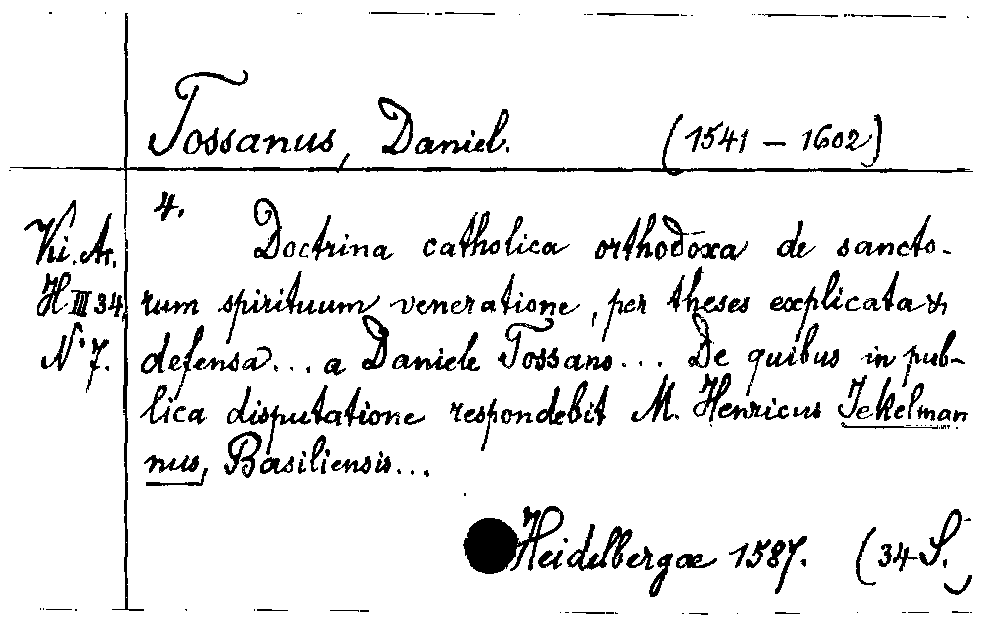 Tossanus, Daniel. (1541 – 1602)
4.
Ki. Ar.
H III 34,
N° 7.
Doctrina catholica orthodoxa de sancto-
rum spirituum veneratione, per theses explicata &
defensa... a Daniele Tossano... De quibus in pub-
lica disputatione respondebit M. Henricus Jekelman
nus, Basiliensis...
Heidelbergae 1587. (34 S.)